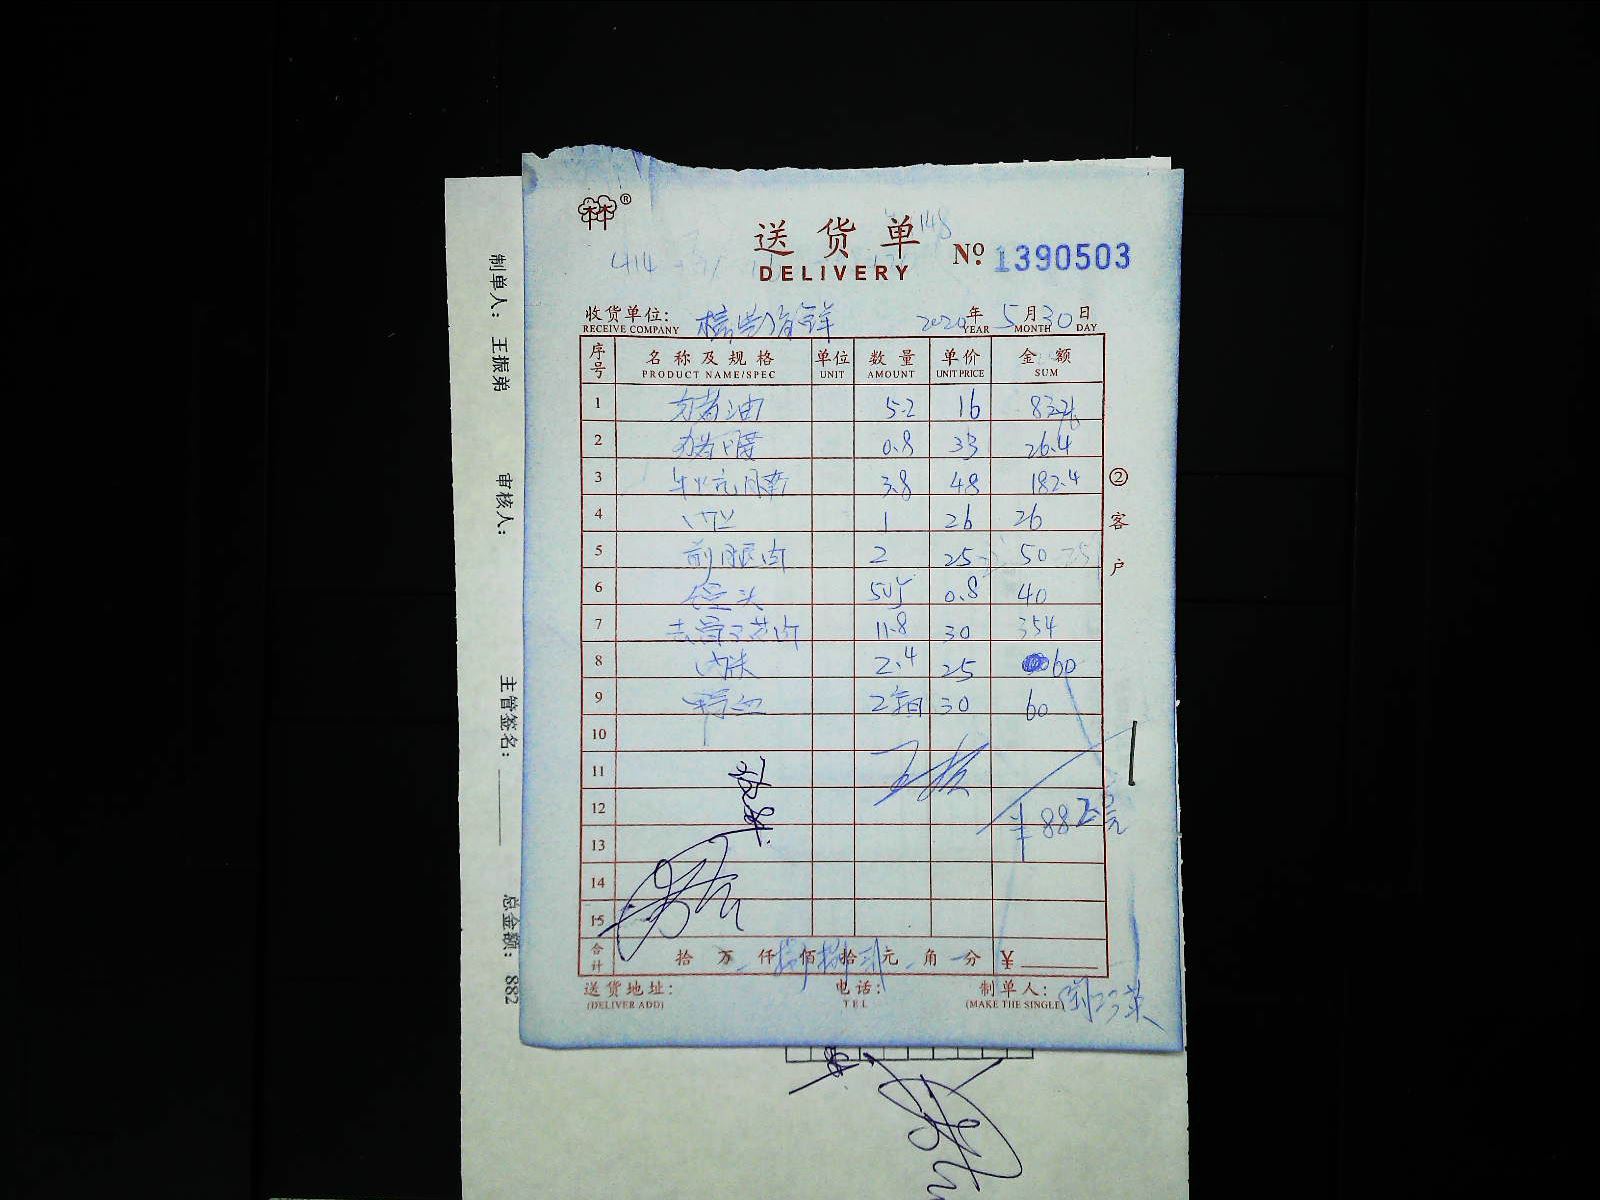 送货单
DELIVERY
№ 1390503
收货单位:
RECEIVE COMPANY
2020年 5月30日
YEAR MONTH DAY
序号 名称及规格 单位 数量 单价 金额
PRODUCT NAME/SPEC UNIT AMOUNT UNIT PRICE SUM
1 猪油 5.2 16 83.2
2 0.8 33 26.4
3 牛坑腩 3.8 48 182.4
4 1 26 26
5 前腿肉 2 25 50
6 馒头 50个 0.8 40
7 去骨 肉 11.8 30 354
8 2.4 25 60
9 猪血 2箱 30 60
10
11
12 ¥882元
13
14
15
合计 拾 万 仟 捌佰捌拾贰元 角 分 ¥
送货地址: 电话: 制单人:
(DELIVER ADD) TEL (MAKE THE SINGLE)
②客户
制单人: 王振弟 审核人: 主管签名: 总金额: 882